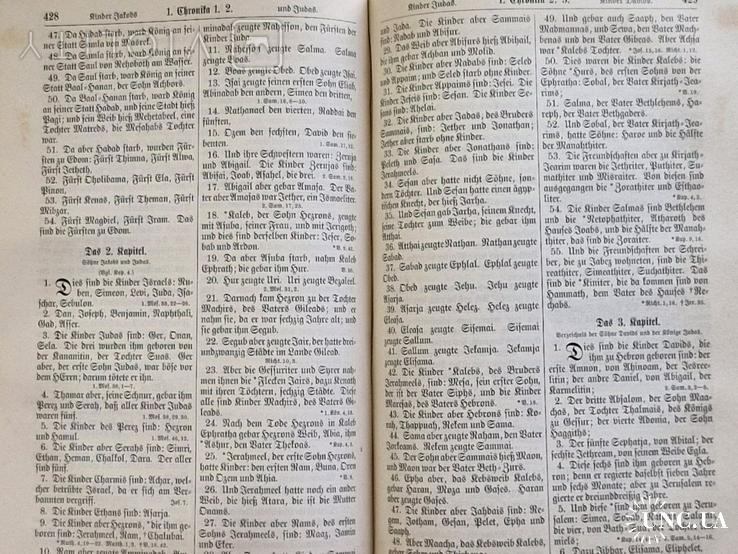 428
Kinder Jakobs
1. Chronika 1. 2.
und Judas.
47. Da Hadad starb, ward König an seiner
Statt Samla von Masrek.
48. Da Samla starb, ward König an seiner
Statt Saul von Rehoboth am Wasser.
49. Da Saul starb, ward König an seiner
Statt Baal-Hanan, der Sohn Achbors.
50. Da Baal-Hanan starb, ward König
an seiner Statt Hadad, und seine Stadt hieß
Pagi; und sein Weib hieß Mehetabeel, eine
Tochter Matreds, die Mesahabs Tochter
war.
51. Da aber Hadad starb, wurden Fürsten
zu Edom: Fürst Thimna, Fürst Alwa,
Fürst Jetheth,
52. Fürst Oholibama, Fürst Ela, Fürst
Pinon,
53. Fürst Kenas, Fürst Theman, Fürst
Mibzar,
54. Fürst Magdiel, Fürst Iram. Das
sind die Fürsten zu Edom.
Das 2. Kapitel.
Söhne Jakobs und Judas.
(Vgl. Kap. 4.)
1. Dies sind die Kinder Israels: Ruben,
Simeon, Levi, Juda, Isaschar,
Sebulon,
2. Dan, Joseph, Benjamin, Naphthali,
Gad, Asser.
3. Die Kinder Judas sind: Ger, Onan,
Sela. Die drei wurden ihm geboren von der
Kanaanitin, der Tochter Suas. Ger
aber, der erste Sohn Judas, war böse vor
dem HErrn; darum tötete er ihn.
4. Thamar aber, seine Schnur, gebar ihm
Perez und Serah, daß aller Kinder Judas
waren fünf.
5. Die Kinder des Perez sind: Hezron
und Hamul.
6. Die Kinder aber Serahs sind: Simri,
Ethan, Heman, Chalkol, Dara. Der aller
sind fünf.
7. Die Kinder Charmis sind: Achar, welcher
betrübte Israel, da er sich am Verbannten
vergriff.
8. Die Kinder Ethans sind: Asarja.
9. Die Kinder aber Hezrons, die ihm geboren
sind: Jerahmeel, Ram, Chalubai.
10. Ram aber zeugte Amminadab.
minadab zeugte Nahesson, den Fürsten der
Kinder Juda.
11. Nahesson zeugte Salma. Salma
zeugte Boas.
12. Boas zeugte Obed. Obed zeugte Isai.
13. Isai zeugte seinen ersten Sohn Eliab,
Abinadab den andern, Simea den dritten,
14. Nathanael den vierten, Raddai den
fünften,
15. Ozem den sechsten, David den siebenten.
16. Und ihre Schwestern waren: Zeruja
und Abigail. Die Kinder Zerujas sind:
Abisai, Joab, Asahel, die drei.
17. Abigail aber gebar Amasa. Der Vater
aber Amasas war Jether, ein Ismaeliter.
18. Kaleb, der Sohn Hezrons, zeugte
mit Asuba, seiner Frau, und mit Jerigoth;
und dies sind derselben Kinder: Jeser, Sobab
und Ardon.
19. Da aber Asuba starb, nahm Kaleb
Ephrath; die gebar ihm Hur.
20. Hur zeugte Uri. Uri zeugte Bezaleel.
21. Darnach kam Hezron zu der Tochter
Machirs, des Vaters Gileads; und er
nahm sie, da er sechzig Jahre alt war; und
sie gebar ihm Segub.
22. Segub aber zeugte Jair, der hatte dreiundzwanzig
Städte im Lande Gilead.
23. Aber die Gessuriter und Syrer nahmen
ihnen die Flecken Jairs, dazu Kenath
mit ihren Töchtern, sechzig Städte. Diese
alle sind Kinder Machirs, des Vaters Gileads.
24. Nach dem Tode Hezrons in Kaleb
Ephratha gebar Hezrons Weib, Abia, ihm
Ashur, den Vater Thekoas.
25. Jerahmeel, der erste Sohn Hezrons,
hatte Kinder: den ersten Ram, Buna, Oren
und Ozem und Ahia.
26. Und Jerahmeel hatte noch ein ander
Weib, die hieß Atara; die ist die Mutter
Onams.
27. Die Kinder aber Rams, des ersten
Sohns Jerahmeels, sind: Maaz, Jamin
und Eker.
Kinder Judas.
1. Chronika 2. 3.
Kinder Davids.
429
und Jada. Die Kinder aber Sammais
sind: Nadab und Abisur.
29. Das Weib aber Abisurs hieß Abihail,
die ihm gebar Achban und Molid.
30. Die Kinder aber Nadabs sind: Seled
und Appaim; und Seled starb ohne Kinder.
31. Die Kinder Appaims sind: Jesei. Die
Kinder Jeseis sind: Sesan. Die Kinder Sesans
sind: Ahelai.
32. Die Kinder aber Jadas, des Bruders
Sammais, sind: Jether und Jonathan;
Jether aber starb ohne Kinder.
33. Die Kinder aber Jonathans sind:
Peleth und Sasa. Das sind die Kinder
Jerahmeels.
34. Sesan aber hatte nicht Söhne, sondern
Töchter. Und Sesan hatte einen ägyptischen
Knecht, der hieß Jarha.
35. Und Sesan gab Jarha, seinem Knecht,
seine Tochter zum Weibe; die gebar ihm
Atthai.
36. Atthai zeugte Nathan. Nathan zeugte
Sabad.
37. Sabad zeugte Ephlal. Ephlal zeugte
Obed.
38. Obed zeugte Jehu. Jehu zeugte
Asarja.
39. Asarja zeugte Helez. Helez zeugte
Eleasa.
40. Eleasa zeugte Sisemai. Sisemai
zeugte Sallum.
41. Sallum zeugte Jekamja. Jekamja
zeugte Elisama.
42. Die Kinder Kalebs, des Bruders
Jerahmeels, sind: Mesa, sein erster Sohn,
der ist der Vater Siphs, und die Kinder
Maresas, des Vaters Hebrons.
43. Die Kinder aber Hebrons sind: Korah,
Thappuah, Rekem und Sama.
44. Sama aber zeugte Raham, den Vater
Jorkeams. Rekem zeugte Sammai.
45. Der Sohn aber Sammais hieß Maon,
und Maon war der Vater Beth-Zurs.
46. Epha aber, das Kebsweib Kalebs,
gebar Haran, Moza und Gases. Haran
aber zeugte Gases.
47. Die Kinder aber Jahdais sind: Regem,
Jotham, Gesan, Pelet, Epha und
Saaph.
48. Aber Maacha, das Kebsweib Kalebs,
49. Und gebar auch Saaph, den Vater
Madmannas, und Sewa, den Vater Machbenas
und den Vater Gibeas. Aber Achsa
war Kalebs Tochter.
50. Dies waren die Kinder Kalebs: die
Söhne Hurs, des ersten Sohns von der
Ephratha: Sobal, der Vater Kirjath-Jearims;
51. Salma, der Vater Bethlehems, Hareph,
der Vater Bethgaders.
52. Und Sobal, der Vater Kirjath-Jearims,
hatte Söhne: Haroe und die Hälfte
der Manahthiter.
53. Die Freundschaften aber zu Kirjath-Jearim
waren die Jethriter, Puthiter, Sumathiter
und Misraiter. Von diesen sind
ausgegangen die Zorathiter und Esthaoliter.
54. Die Kinder Salmas sind Bethlehem
und die Netophathiter, Atharoth des
Hauses Joabs, und die Hälfte der Manahthiter,
das sind die Zoraiter.
55. Und die Freundschaften der Schreiber,
die zu Jabez wohnten, sind die Thireathiter,
Simeathiter, Suchathiter. Das
sind die Kiniter, die da gekommen sind von
Hammath, des Vaters des Hauses Rechabs.
Das 3. Kapitel.
Verzeichnis der Söhne Davids und der Könige Judas.
1. Dies sind die Kinder Davids, die
ihm zu Hebron geboren sind: der
erste Amnon, von Ahinoam, der Jesreelitin;
der andere Daniel, von Abigail, der
Karmelitin;
2. Der dritte Absalom, der Sohn Maachas,
der Tochter Thalmais, des Königs
zu Gessur; der vierte Adonia, der Sohn
Hagiths;
3. Der fünfte Sephatja, von Abital; der
sechste Jethream, von seinem Weibe Egla.
4. Diese sechs sind ihm geboren zu Hebron;
denn er regierte daselbst sieben Jahre
und sechs Monate; aber zu Jerusalem regierte
er dreiunddreißig Jahre.
5. Und diese sind ihm geboren zu Jerusalem:
UNC.UA